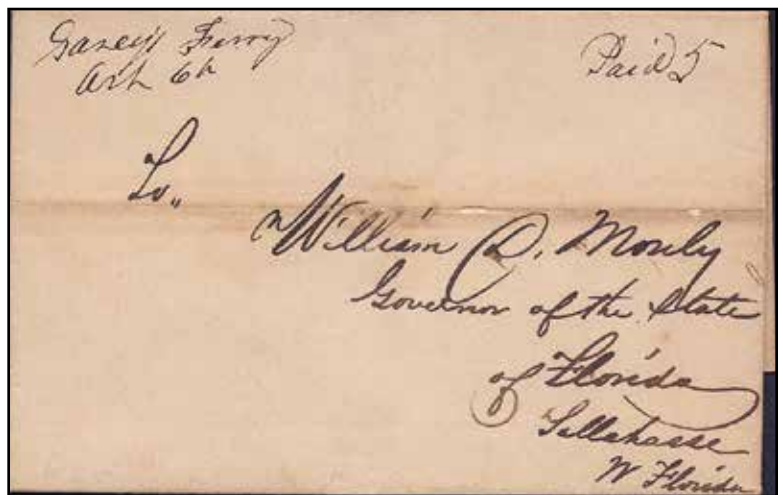 Ganey's Ferry
6th
Paid 5
To,,
William D. Mosely
Governor of the State
of Florida
Tallahasse
W Florida